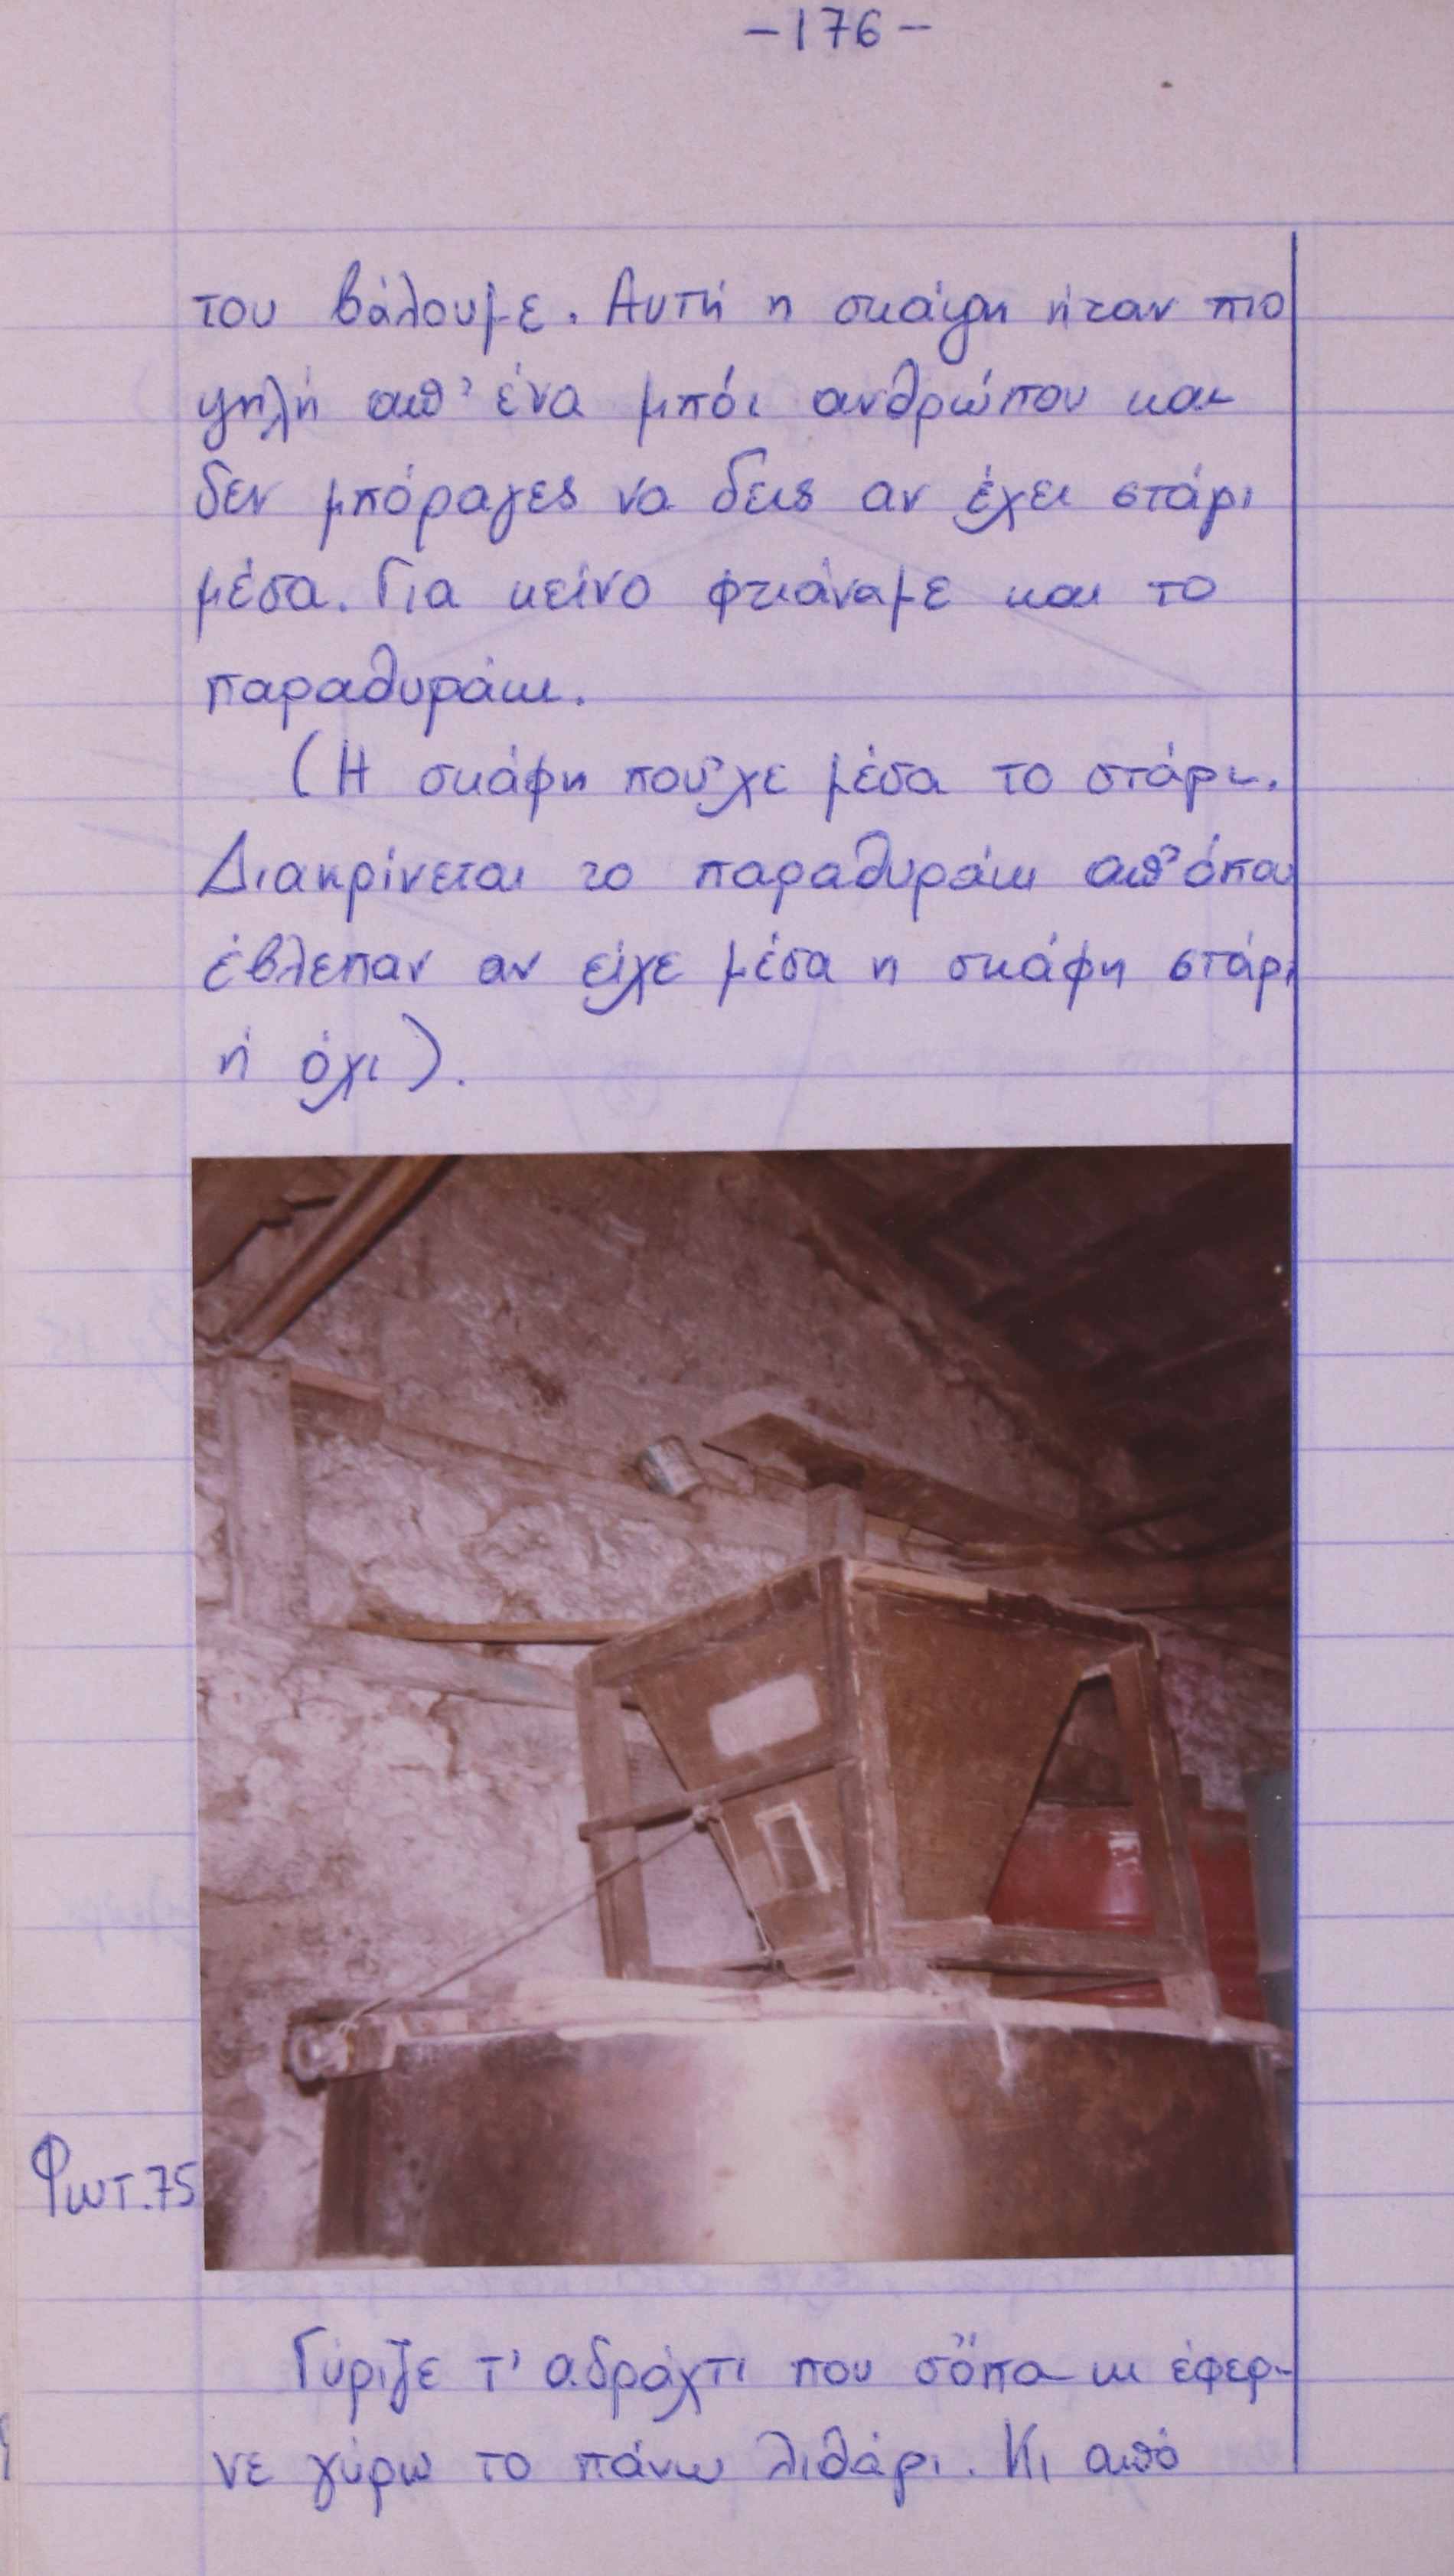 -176-
του βάλουμε. Αυτή η σκάφη ήταν πιο
ψηλή απ' ένα μπόι ανθρώπου και
δεν μπόραγες να δεις αν έχει στάρι
μέσα. Για κείνο φτιάναμε και το
παραθυράκι.
(Η σκάφη πού'χε μέσα το στάρι.
Διακρίνεται το παραθυράκι απ' όπου
έβλεπαν αν είχε μέσα η σκάφη στάρι
ή όχι).
Φωτ.75
Γύριζε τ' αδράχτι που σό'πα κι έφερ-
νε γύρω το πάνω λιθάρι. Κι από